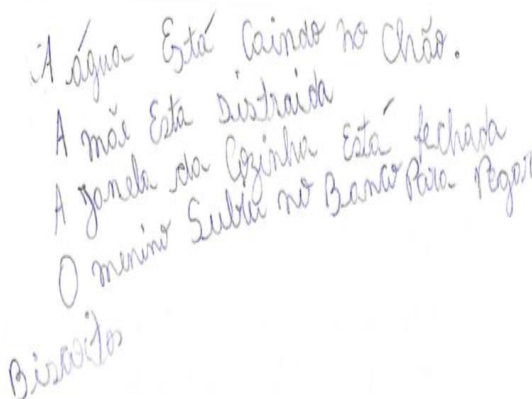 A água Está Caindo no Chão.
A mãe Esta Distraida
A Janela da Cozinha Está fechada
O menino Subiu no Banco Para Pegar
Biscoitos